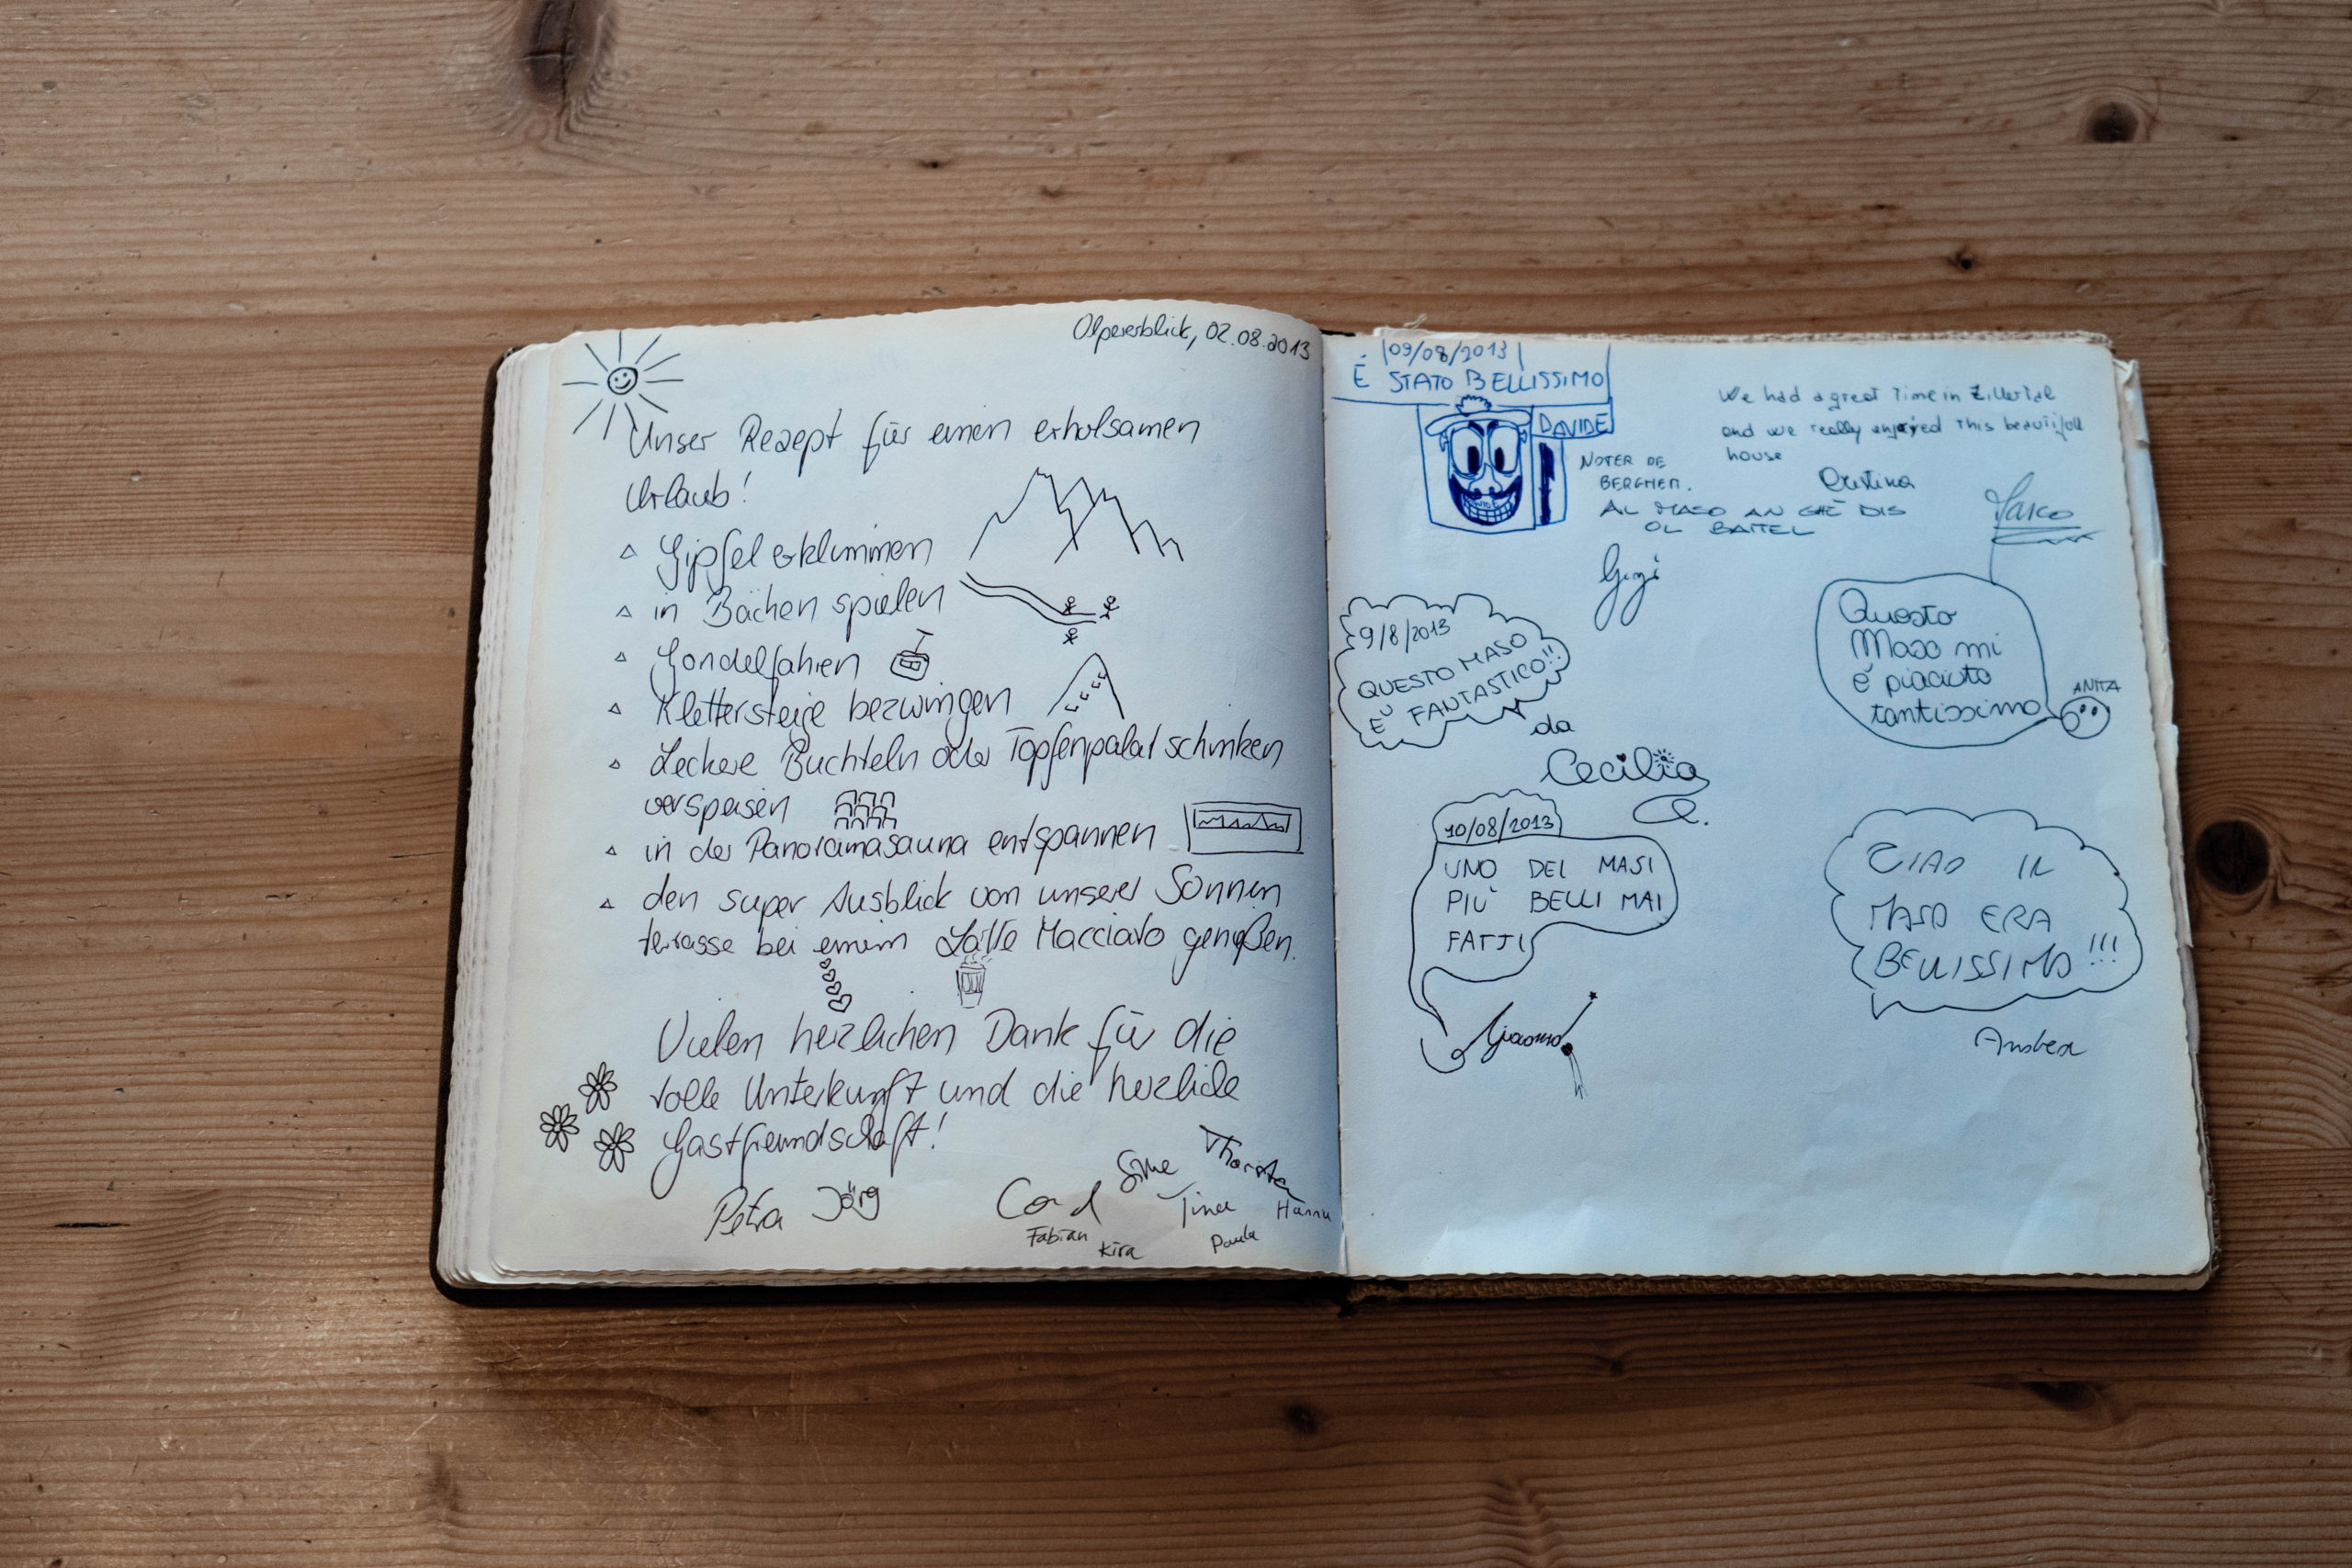 Olpererblick, 02.08.2013
Unser Rezept für einen erholsamen
Urlaub!
Gipfel erklimmen
in Bächen spielen
Gondelfahren
Klettersteige bezwingen
Leckere Buchteln oder Topfenpalatschinken
verspeisen
in der Panoramasauna entspannen
den super Ausblick von unserer Sonnen
terrasse bei einem Latte Macciato genießen.
Vielen herzlichen Dank für die
tolle Unterkunft und die herzliche
Gastfreundschaft!
Petra Jörg
Cord
Fabian
Kira
Thorsten
Tina
Hanna
Paula
09/08/2013
É STATO BELLISSIMO
DAVIDE
We had a great time in Zillertal
and we really enjoyed this beautifull
house
Cristina
NOTER DE
BERGHEM.
AL MASO AN GHÈ DIS
OL BAITEL
Gigi
Marco
9/8/2013
QUESTO MASO
E' FANTASTICO!!
da
Cecilia
C.
Questo
Maso mi
è piaciuto
tantissimo
ANITA
10/08/2013
UNO DEI MASI
PIÙ BELLI MAI
FATTI
Giacomo
CIAO IL
MASO ERA
BELLISSIMO!!!
Andrea